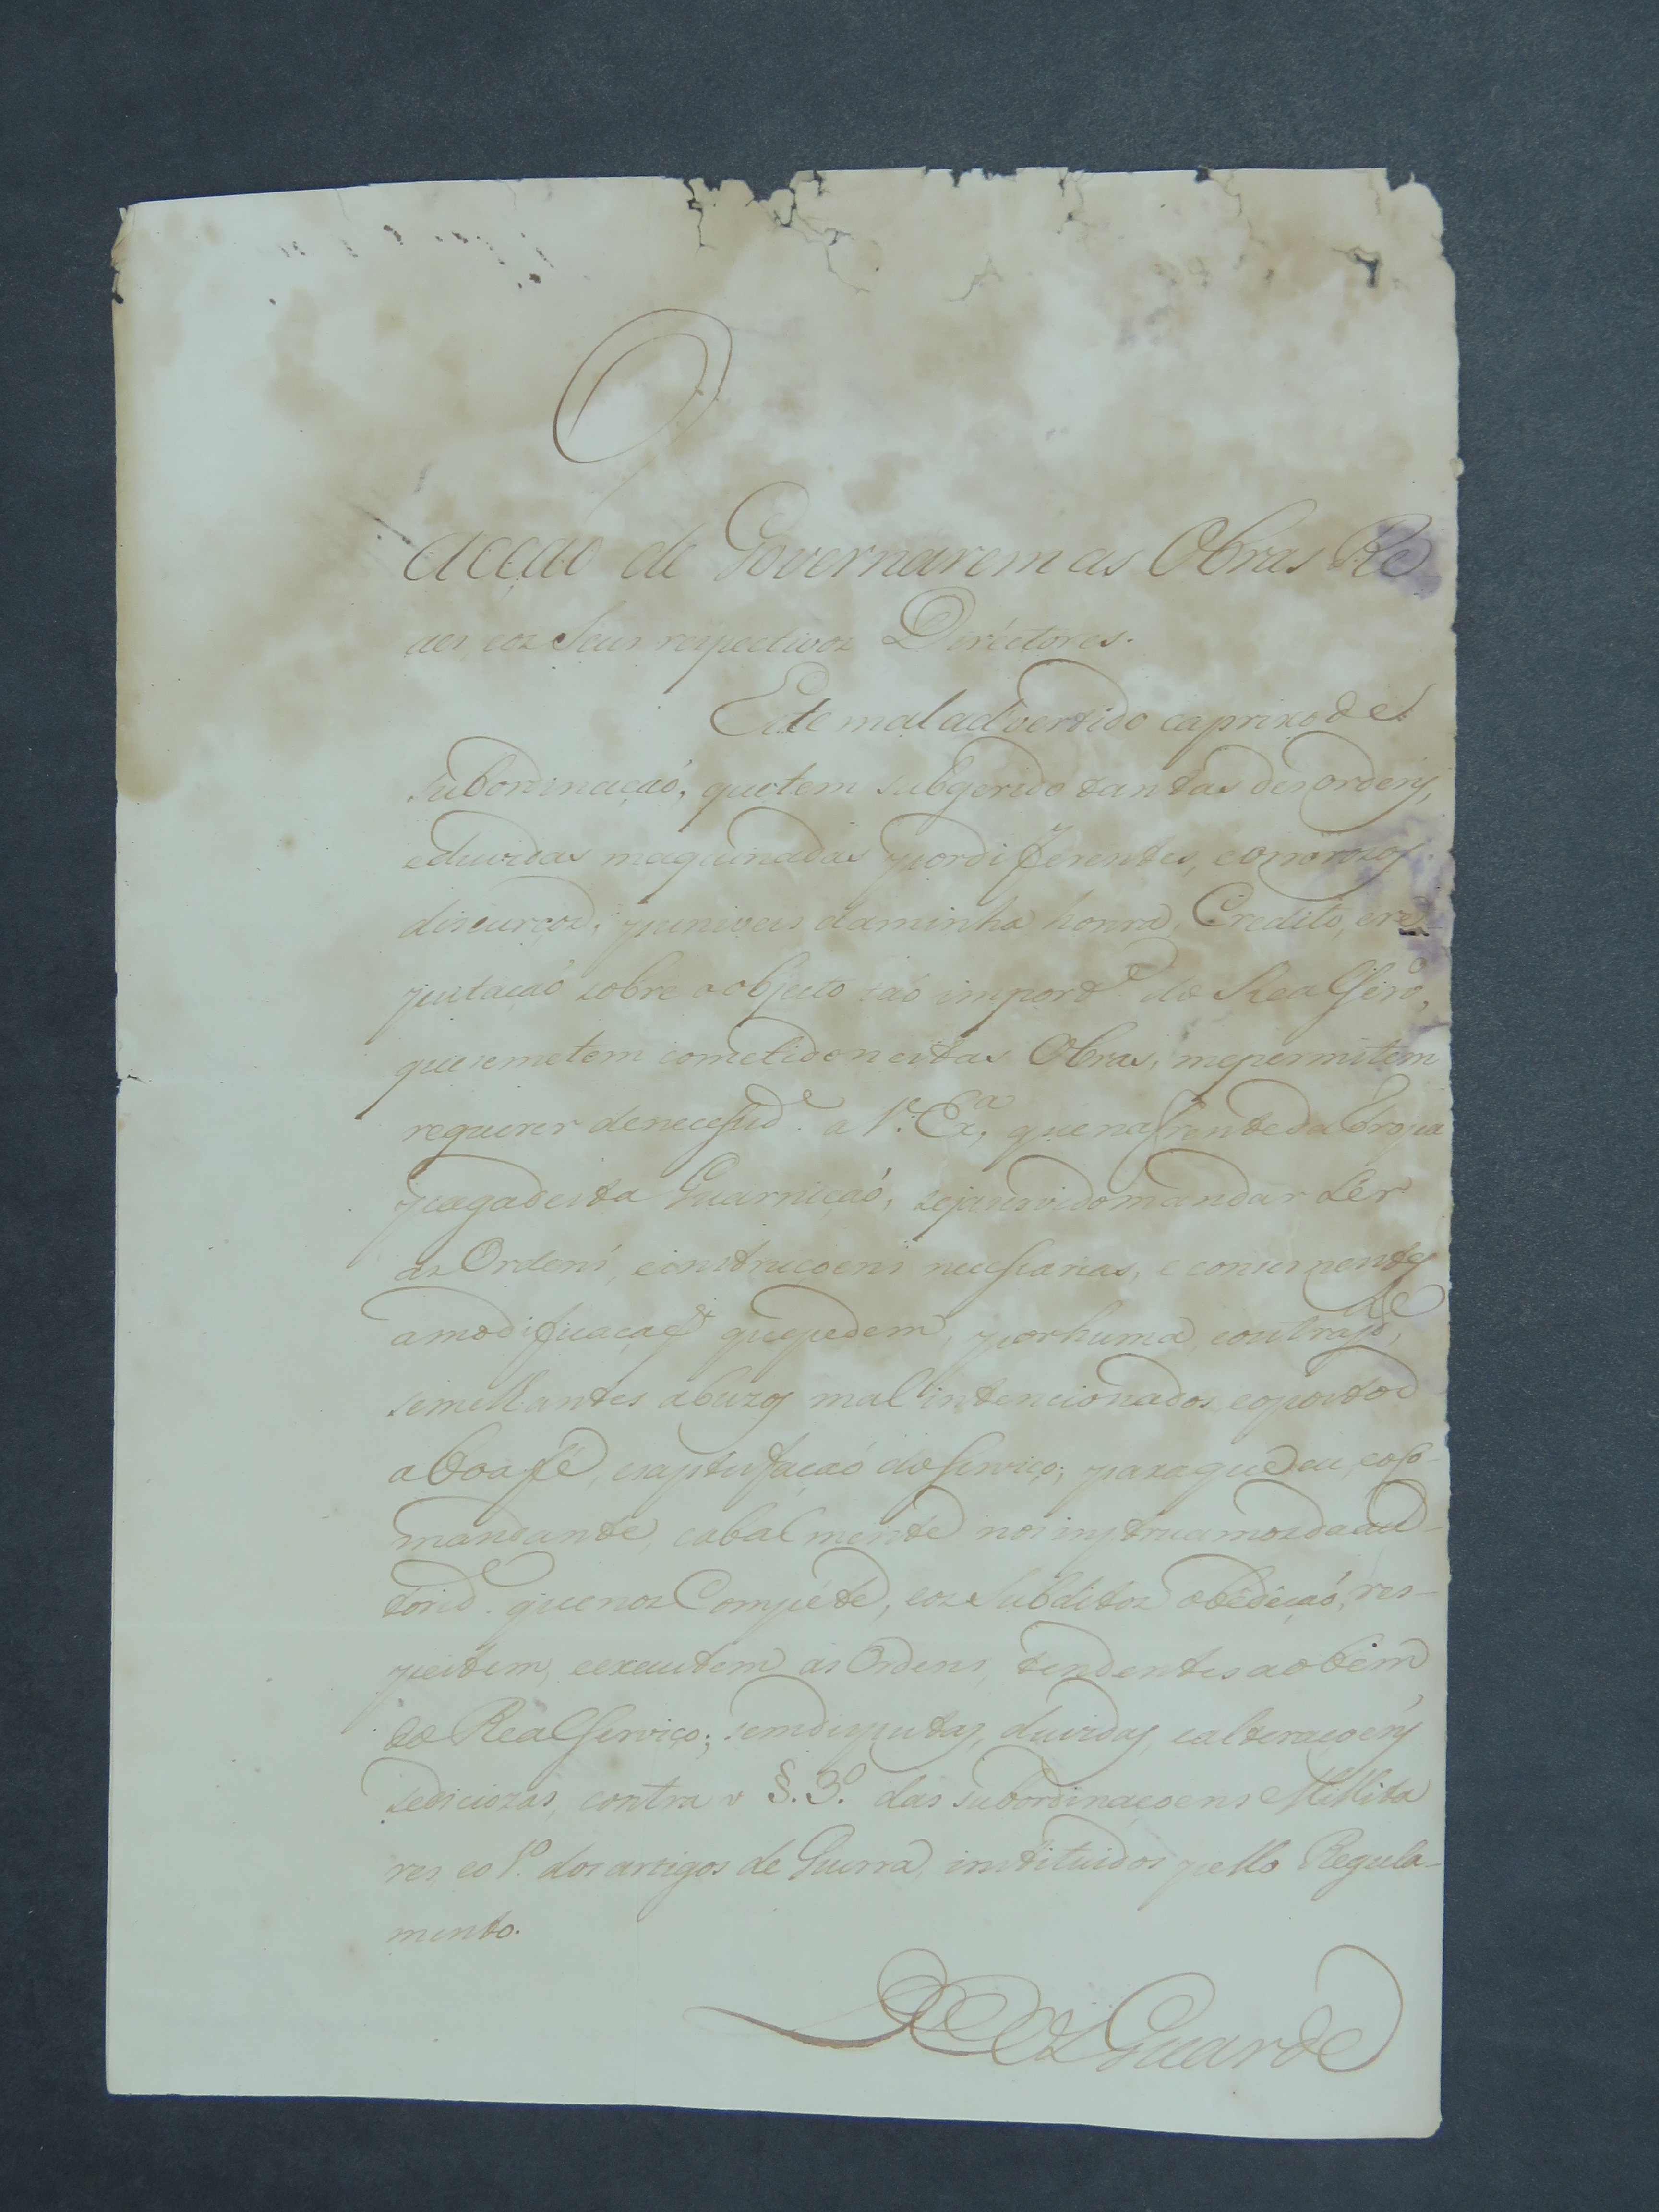 acçaõ de Governarem as Obras Re
aes, eoz seus respectivoz Diréctores.
Este mal advertido caprixo de
subordinaçaõ, que tem subgerido tantas desordens,
eduvidas maquinadas por differentes, e
discurços, puniveis daminha honra, Credito, ere
putaçaõ sobre o objecto taõ import.e do Real Serv.o,
que se me tem cometido nestas Obras, me permitem
requerer denecessid.e a V. Ex.a, que na frente da Tropa
paga desta Guarniçaõ, seja servido mandar Lér
as Ordens, einstrucoens necessarias, e
amodificaçaõ que pedem, por huma, e outra p.te,
semelhantes abuzos mal intencionados, eoposto
aboa fé, e do Serviço; para que eu, eoCo
mandante, cabalmente nos instruamos da au-
torid.e que nos Compéte, eoz Subditoz obedeçaõ, res-
peitem, eexecutem as Ordens, tendentes ao bem
do Real Serviço; sem disputas, duvidas, ealteraçoens
sediciozas, contra o §. 3.º das Subordinaçoens Millita
res, eo 1.º dos artigos de Guerra, instituidos pello Regula-
mento.
D.s Guarde